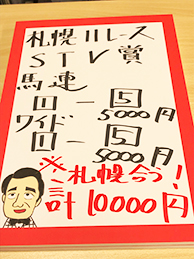 札幌11レース
STV賞
馬連
1-5
5000円
ワイド
1-5
5000円
※札幌合う!
計10000円